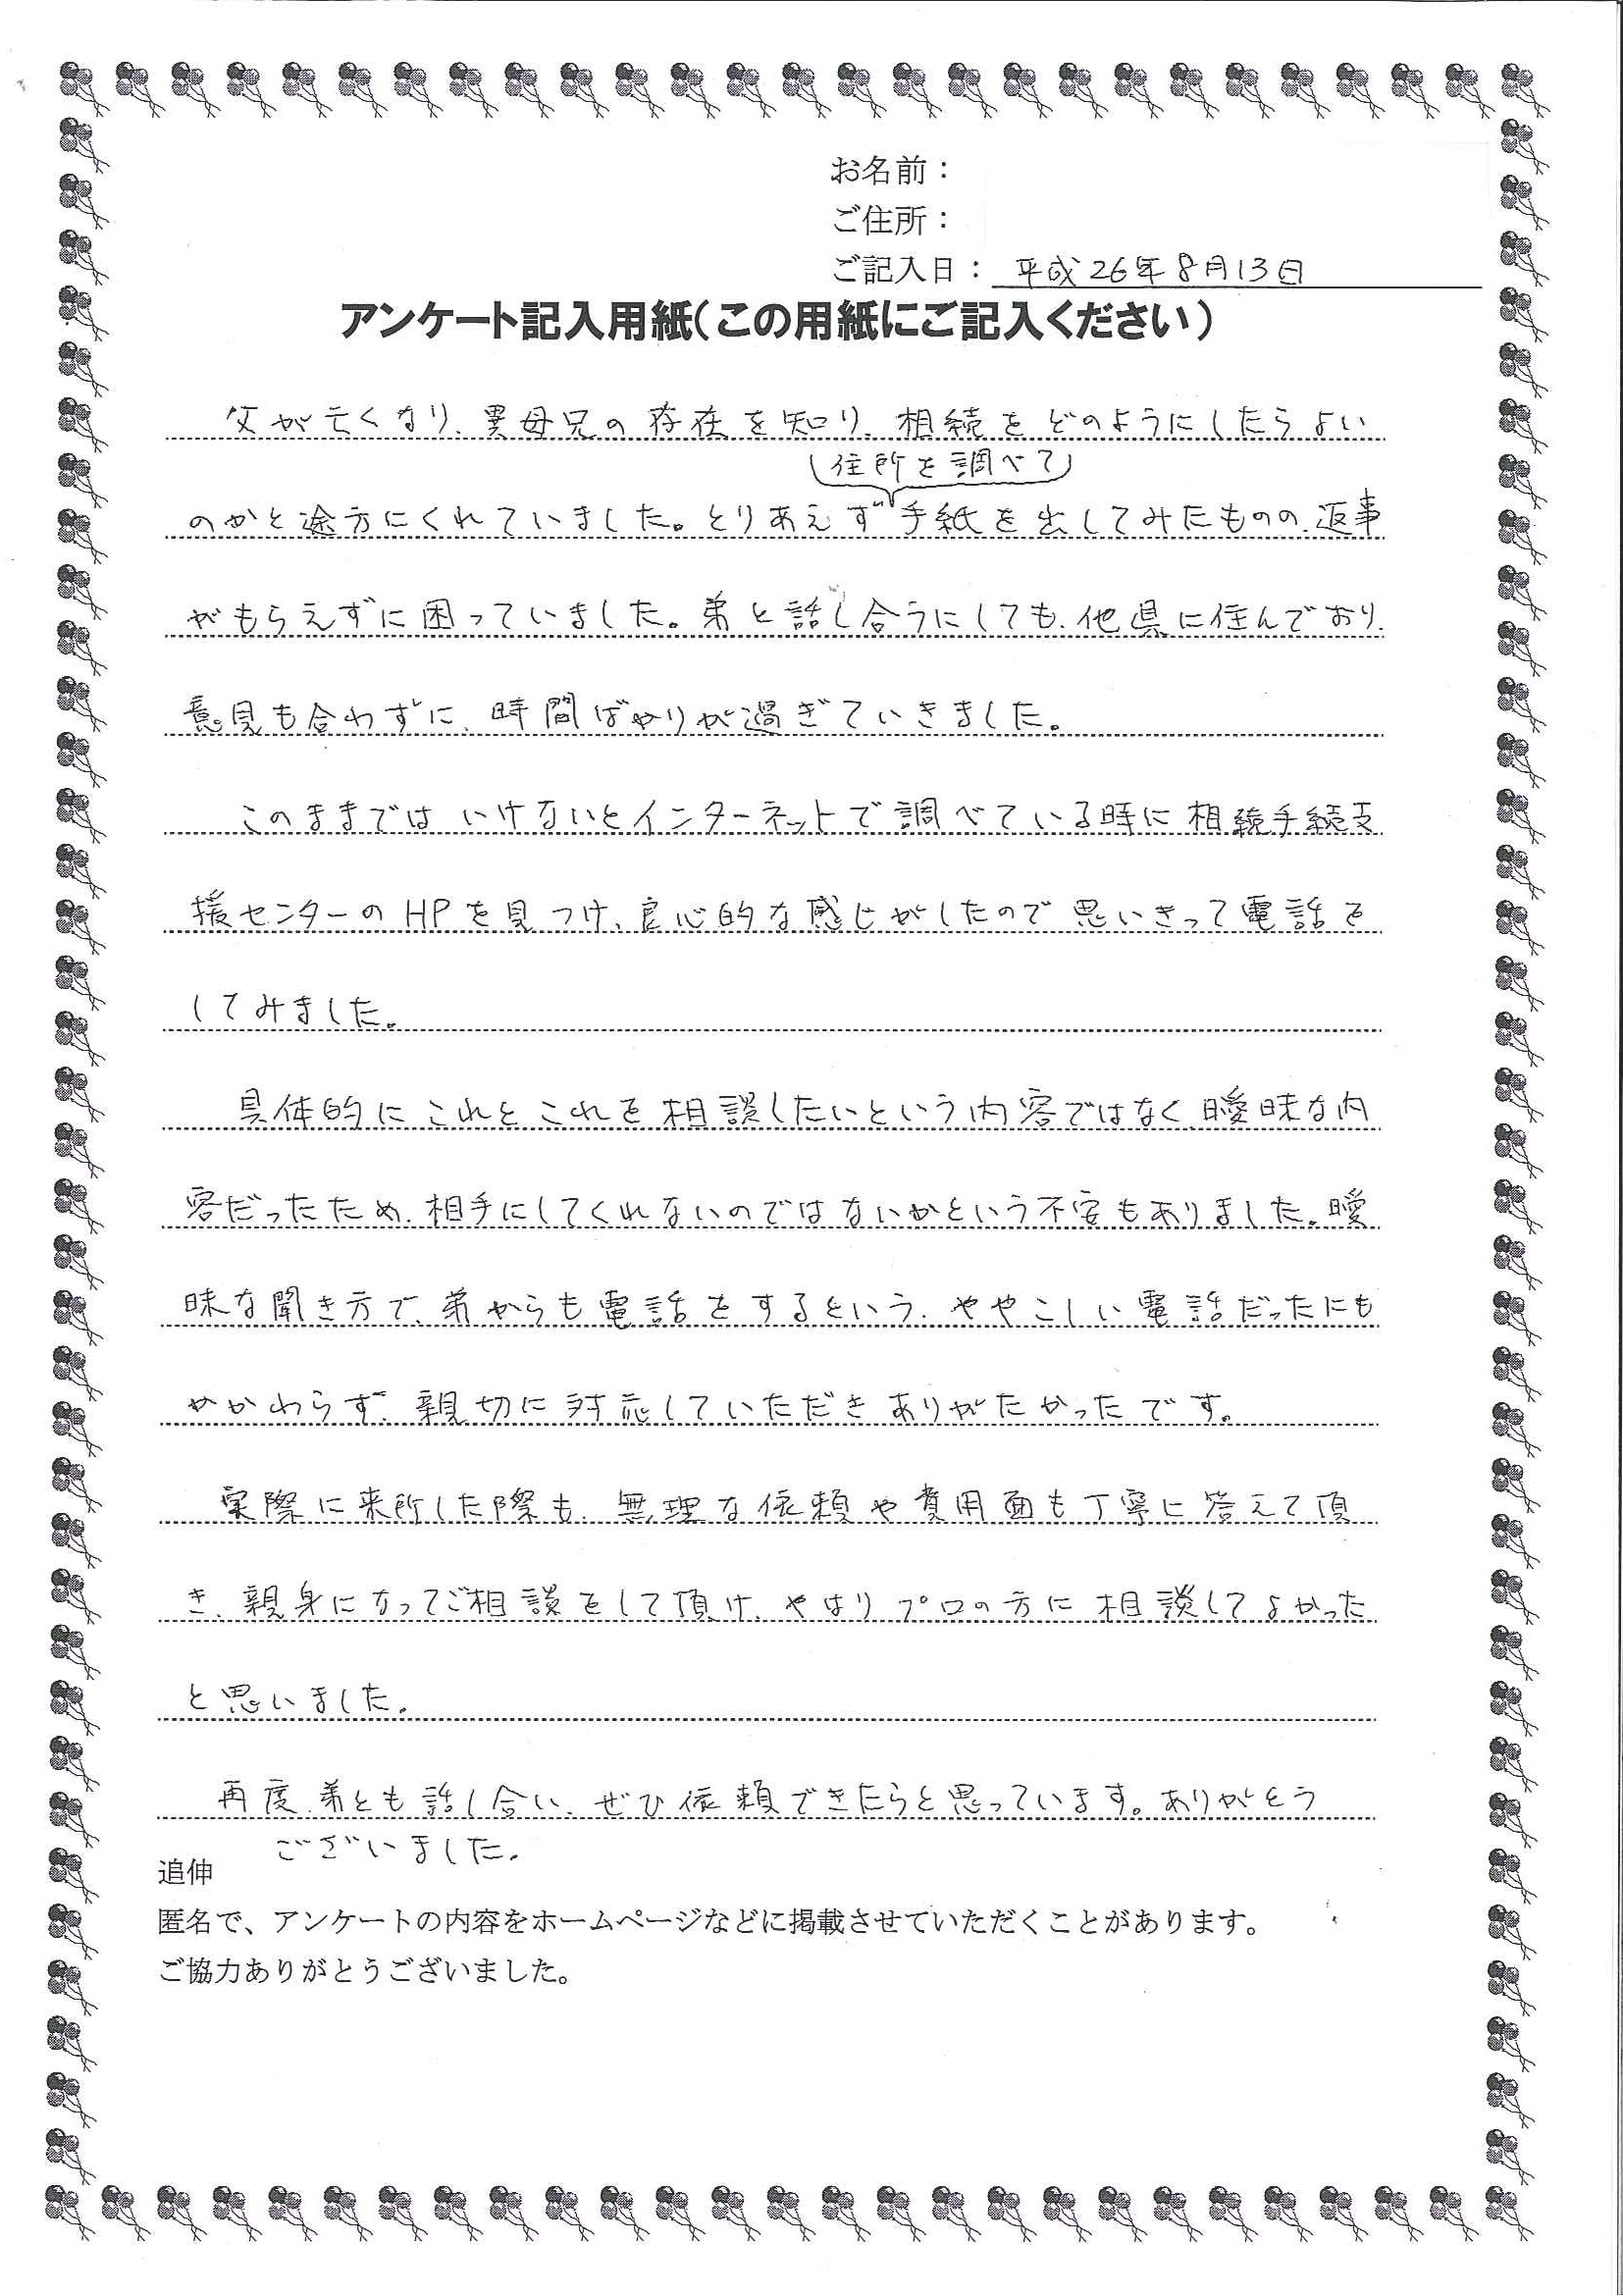 お名前：
ご住所：
ご記入日： 平成26年8月13日
アンケート記入用紙（この用紙にご記入ください）
父が亡くなり、異母兄の存在を知り、相続をどのようにしたらよい
（住所を調べて）
のかと途方にくれていました。とりあえず手紙を出してみたものの、返事
がもらえずに困っていました。弟と話し合うにしても、他県に住んでおり、
意見も合わずに、時間ばかりが過ぎていきました。
このままではいけないとインターネットで調べている時に相続手続支
援センターのHPを見つけ、良心的な感じがしたので思いきって電話を
してみました。
具体的にこれとこれを相談したいという内容ではなく、曖昧な内
容だったため、相手にしてくれないのではないかという不安もありました。曖
昧な聞き方で、弟からも電話をするという、ややこしい電話だったにも
かかわらず、親切に対応していただきありがたかったです。
実際に来所した際も、無理な依頼や費用面も丁寧に答えて頂
き、親身になってご相談をして頂け、やはりプロの方に相談してよかった
と思いました。
再度、弟とも話し合い、ぜひ依頼できたらと思っています。ありがとう
ございました。
追伸
匿名で、アンケートの内容をホームページなどに掲載させていただくことがあります。
ご協力ありがとうございました。